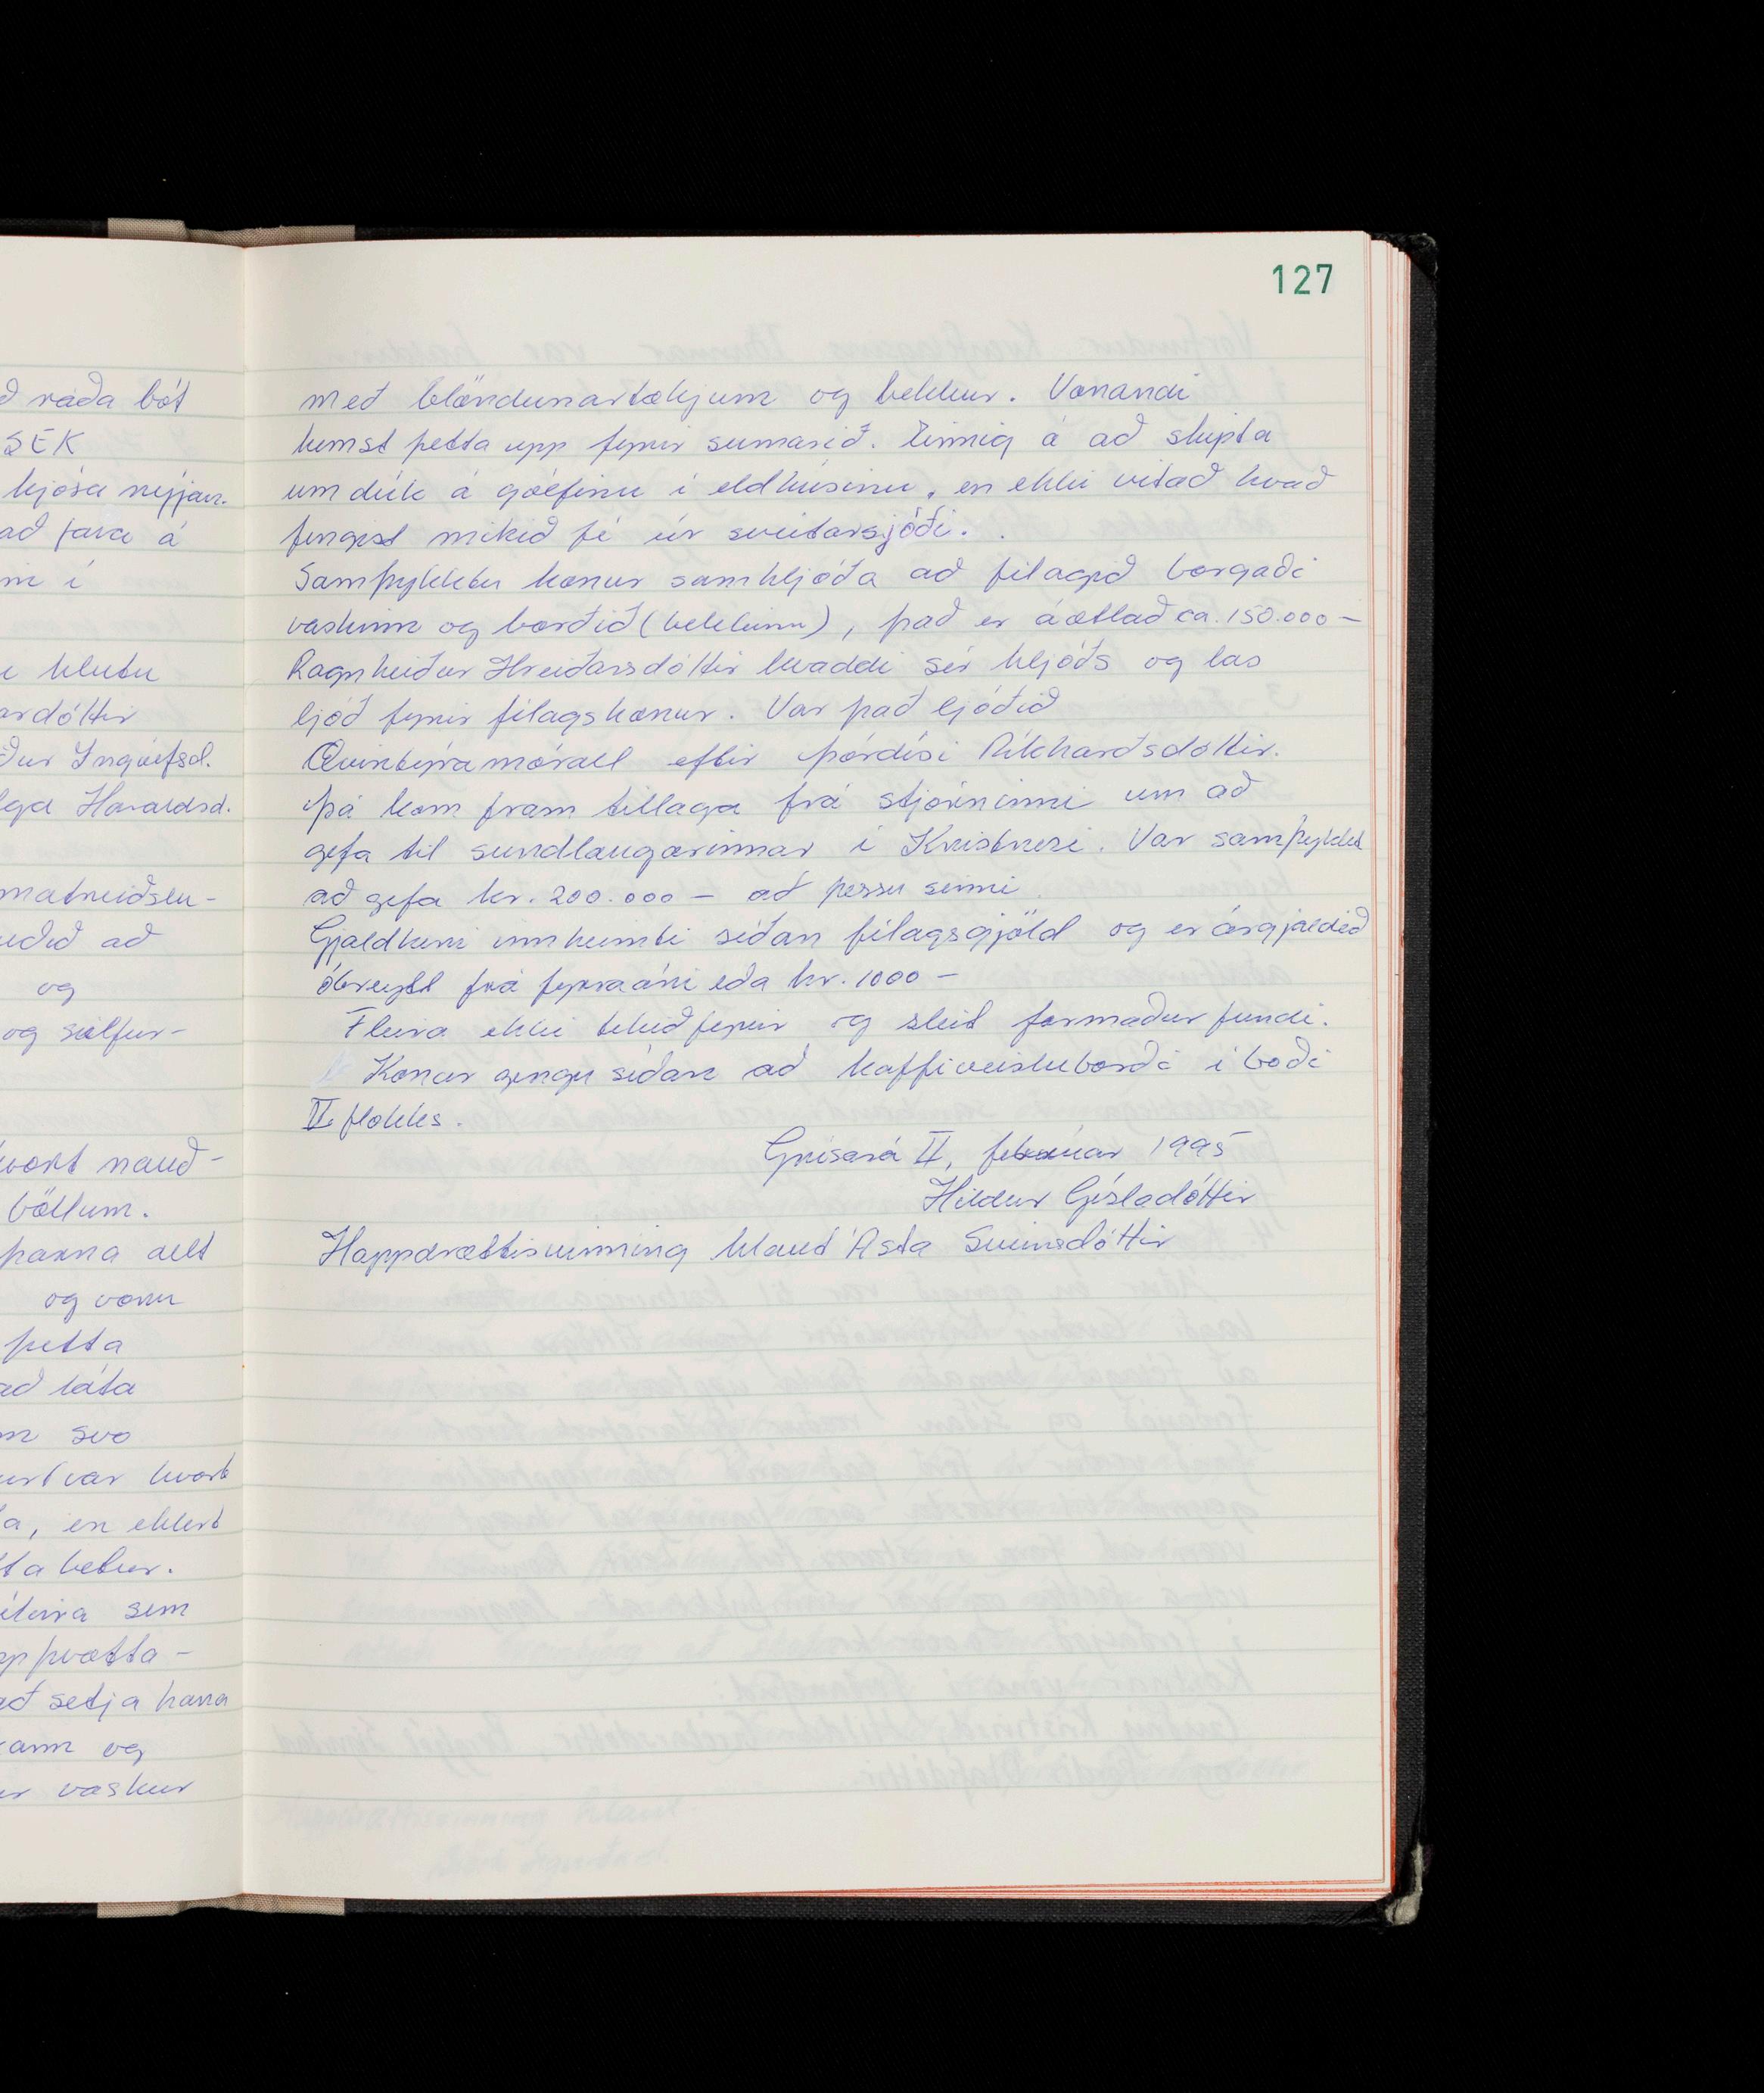 127
ð ráða bót
SEK
kjósa nýjan.
að fara á
m í
u hlutu
ardóttir
ður Ingólfsd.
lga Haraldsd.
matreiðslu-
og
og silfur-
nauð-
böllum.
þarna allt
og voru
þetta
að láta
svo
var hvort
a, en ekkert
ta betur.
sem
pp þvotta-
að setja hana
og
vaskur
með blöndunartækjum og bekkur. Vonandi
kemst þetta upp fyrir sumarið. Einnig á að skipta
um dúk á gólfinu í eldhúsinu, en ekki vitað hvað
fengist mikið fé úr sveitarsjóði.
Samþykktu konur samhljóða að félagið borgaði
vaskinn og borðið (bekkinn), það er áætlað ca. 150.000 -
Ragnheiður Hreiðarsdóttir kvaddi sér hljóðs og las
ljóð fyrir félagskonur. Var það ljóðið
Ævintýramórall eftir Þórdísi Ríkharðsdóttir.
Þá kom fram tillaga frá stjórninni um að
gefa til sundlaugarinnar í Kristnesi. Var samþykkt
að gefa kr. 200.000 - að þessu sinni.
Gjaldkeri innheimti síðan félagsgjöld og er árgjaldið
óbreytt frá fyrra ári eða kr. 1000 -
Fleira ekki tekið fyrir og sleit formaður fundi.
Konur gengu síðan að kaffiveisluborði í boði
V. flokks.
Grísará II, febrúar 1995
Hildur Gísladóttir
Happdrættisvinning hlaut Ásta Sveinsdóttir